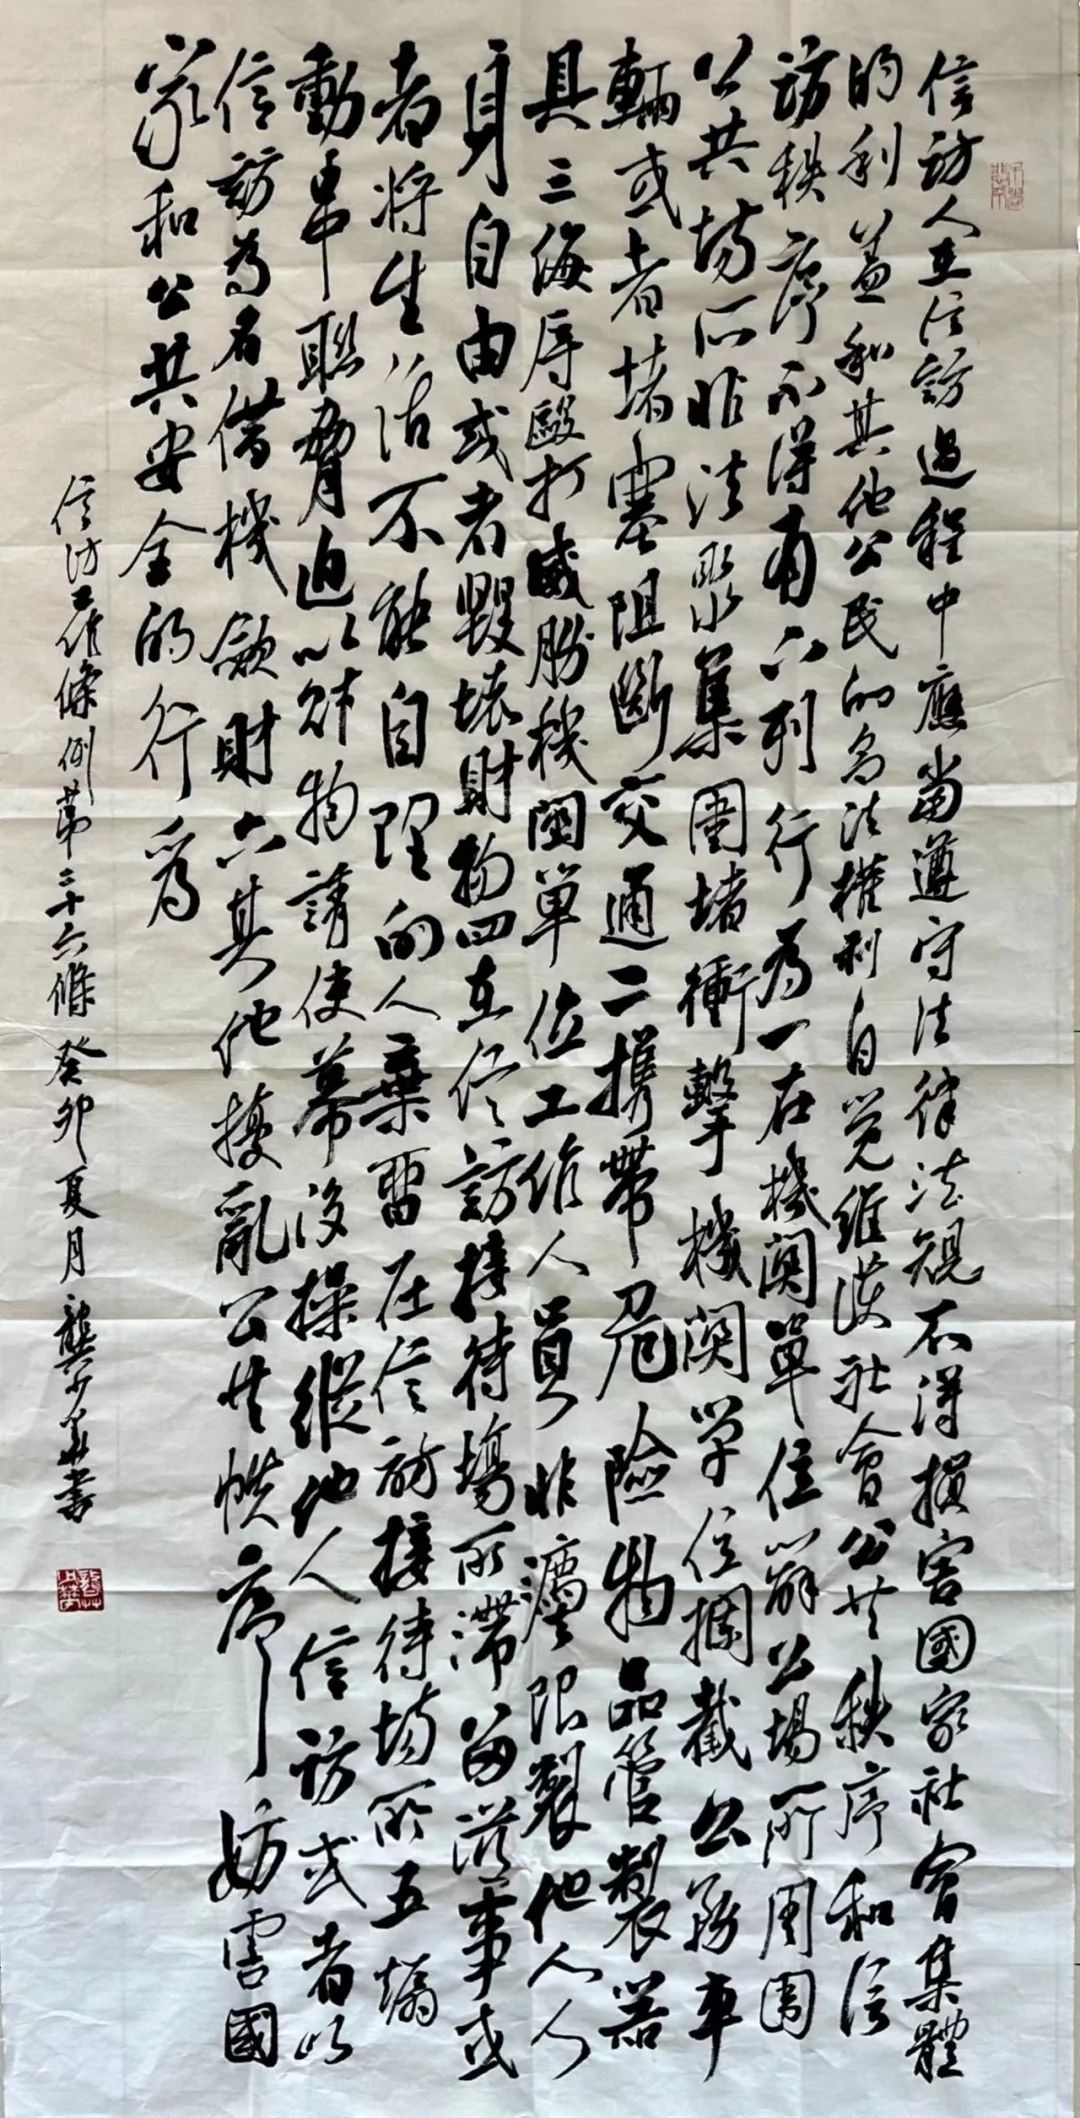 信访人在信訪過程中應當遵守法律法規不得損害國家社會集體
的利益和其他公民的合法權利自覺維護社會公共秩序和信
訪秩序不得有下列行為一在機関單位辦公場所周围
公共場所非法聚集圍堵衝擊機関单位攔截公務車
輛或者堵塞阻斷交通二携帶危險物品管製器
具三侮辱毆打威脅機関单位工作人員非法限製他人人
身自由或者毀壞財物四在信訪接待場所滞留滋事或
者將生活不能自理的人棄留在信訪接待場所五煽
動串聯脅迫以財物誘使幕後操縱他人信访或者以
信訪為名借機斂財六其他擾亂公共秩序妨害國
家和公共安全的行為
信访工作條例第二十六條 癸卯夏月 龔少華書